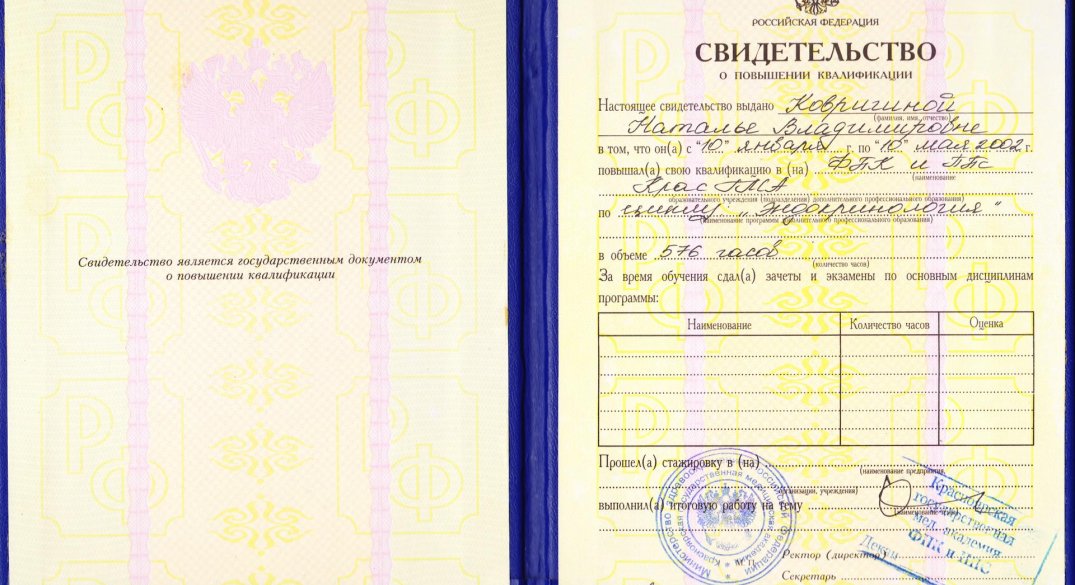 Свидетельство является государственным документом
о повышении квалификации
РОССИЙСКАЯ ФЕДЕРАЦИЯ
СВИДЕТЕЛЬСТВО
О ПОВЫШЕНИИ КВАЛИФИКАЦИИ
Настоящее свидетельство выдано Ковригиной
(фамилия, имя, отчество)
Наталье Владимировне
в том, что он(а) с "10" января г. по "10" мая 2002 г.
повышал(а) свою квалификацию в (на) ФПК и ППС
(наименование
КрасГМА
образовательного учреждения (подразделения) дополнительного профессионального образования)
по циклу "Эндокринология"
(наименование программы дополнительного профессионального образования)
в объеме 576 часов
(количество часов)
За время обучения сдал(а) зачеты и экзамены по основным дисциплинам
программы:
Наименование Количество часов Оценка
Прошел(а) стажировку в (на)
(наименование предприятия,
организации, учреждения)
выполнил(а) итоговую работу на тему
(наименование темы)
Красноярская
государственная
мед. академия
ФПК и ППС
Декан
М.П.
Ректор (директор)
Секретарь
Министерство здравоохранения Российской Федерации
Красноярская государственная медицинская академия
РФ
РФ
РФ
РФ